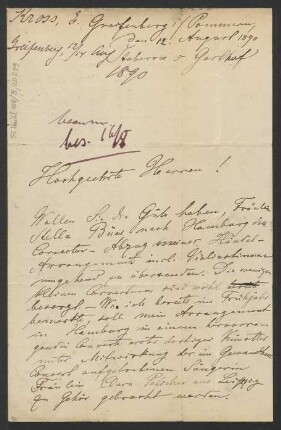 Kross, E. Greifenberg i/ Pommern,
den 12. August 1890
Greifenberg, 12/8
1890
bes. 16/8
Hochgeehrte Herren!
Wollen Sie die Güte haben, Fräulein
Stella nach Hamburg den
Correctur-Abzug meines Händel-
Arrangements incl. Violinstimme
umgehend zu übersenden. Die wenigen
kleinen Correcturen sind wohl
besorgt. Wie ich bereits im Frühjahr
bemerkte soll mein Arrangement
in Hamburg in einem
Concerte erster dortiger Künstler
unter Mitwirkung der im Gewandhaus
Concert aufgetretenen Sängerin
Fräulein Clara aus Leipzig
zu Gehör gebracht werden.